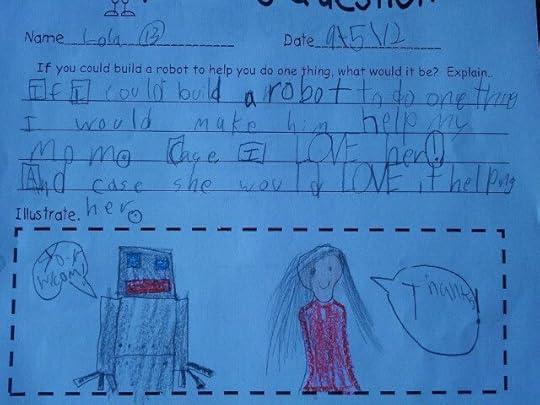 Question
Name Lola 13 Date 9\5\12
If you could build a robot to help you do one thing, what would it be? Explain.
If I could build a robot to do one thing
I would make him help my
mom. Case I LOVE her!
And case she would LOVE it helping
Illustrate. her.
Your
wlcom!
Thanks!